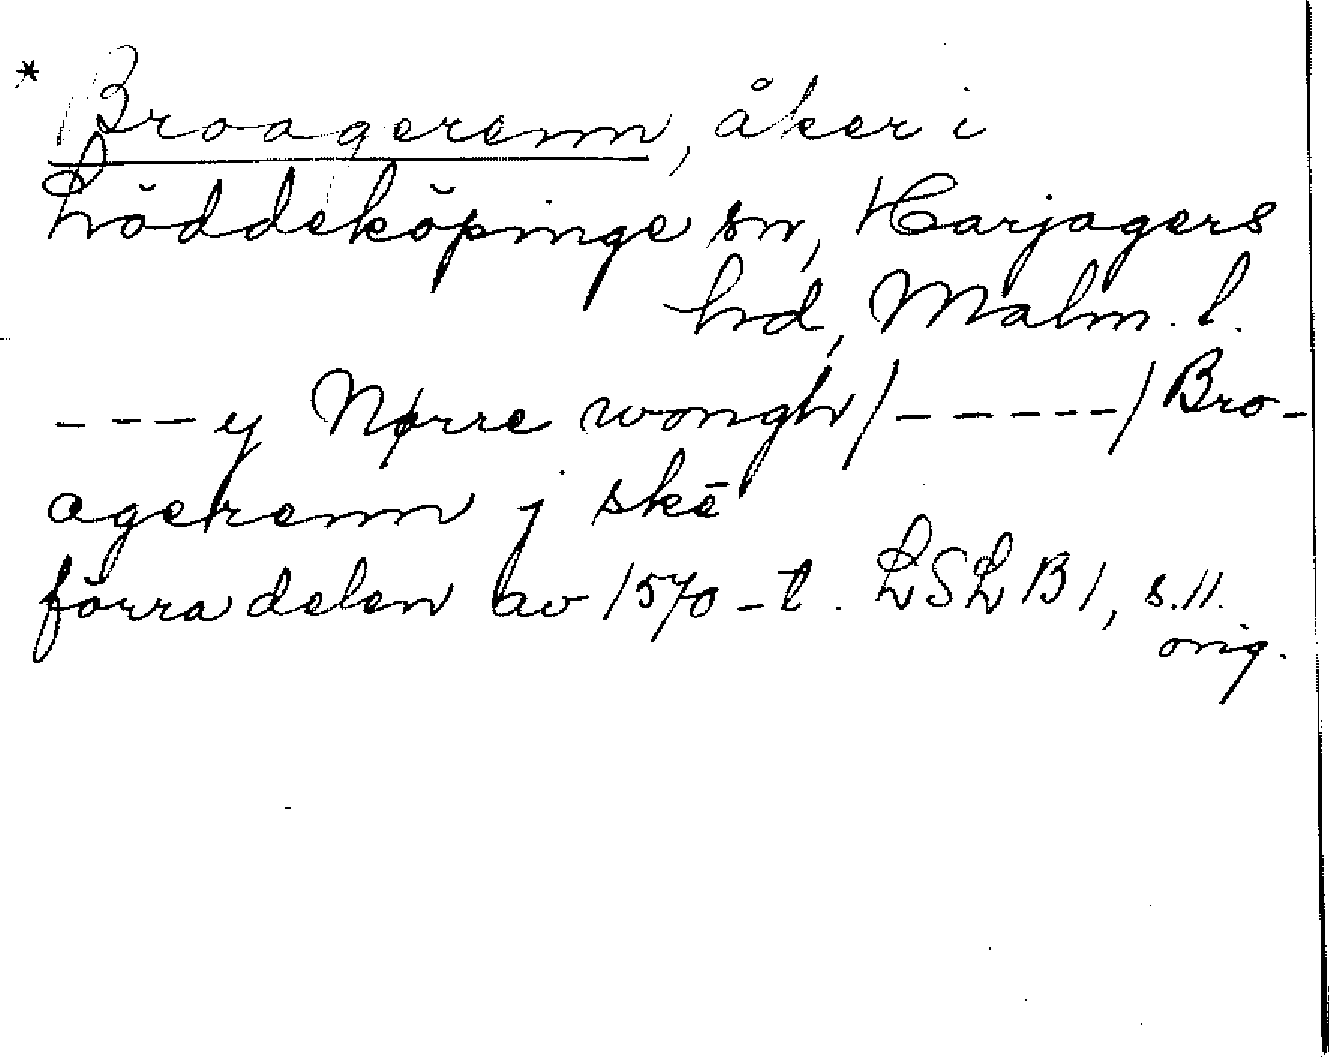 * Broagerenn, åker i
Löddeköpinge sn, Harjagers
hd, Malm. l.
---y Nørre wongh/-----/Bro-
agerenn j skē
förra delen av 1570-t. LSLB1, s.11.
orig.